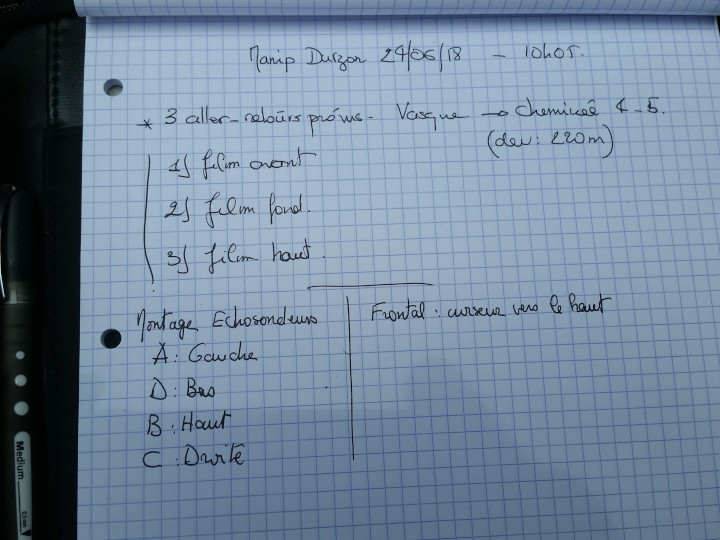 Manip Durzon 24/06/18 - 10h05.
* 3 aller-retours prévus - Vasque → cheminée 4-5.
(dev: 220m)
1) film avant
2) film fond.
3) film haut.
Montage Echosondeurs
A: Gauche
D: Bas
B: Haut
C: Droite
Frontal: curseur vers le haut
Medium